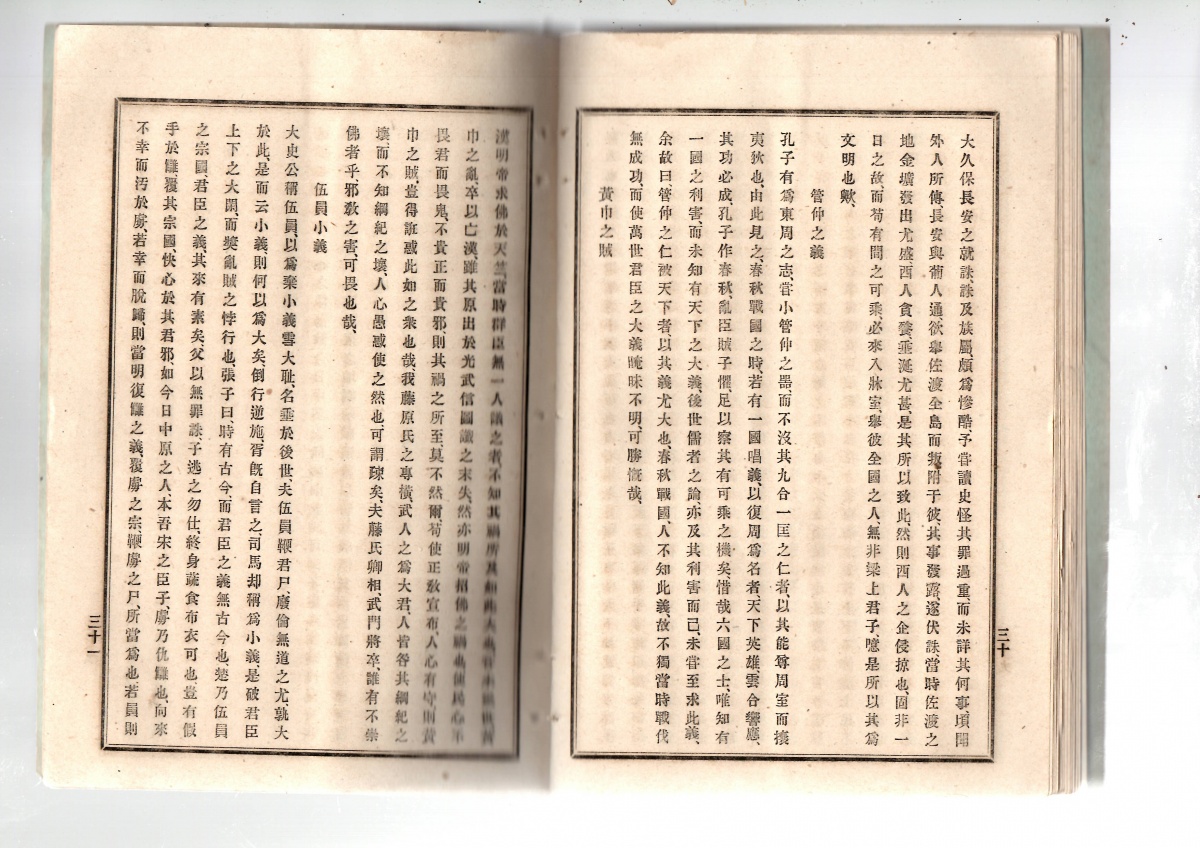 大久保長安之就誅、誅及族屬、頗爲慘酷、予嘗讀史怪其罪過重、而未詳其何事、頃聞
外人所傳、長安與葡人通、欲擧佐渡全島而叛附于彼、其事發露、遂伏誅、當時佐渡之
地、金壙發出尤盛、西人貪婪垂涎尤甚、是其所以致此、然則西人之企侵掠也、固非一
日之故、而苟有間之可乘、必來入牀室、擧彼全國之人、無非梁上君子、噫是所以其爲
文明也歟、
管仲之義
孔子有爲東周之志、嘗小管仲之器、而不沒其九合一匡之仁者、以其能尊周室而攘
夷狄也、由此見之、春秋戰國之時、若有一國唱義、以復周爲名者、天下英雄、雲合響應、
其功必成、孔子作春秋、亂臣賊子懼、足以察其有可乘之機矣、惜哉六國之士、唯知有
一國之利害、而未知有天下之大義、後世儒者之論、亦及其利害而已、未嘗至求此義、
余故曰管仲之仁被天下者、以其義尤大也、春秋戰國、人不知此義、故不獨當時戰伐
無成功、而使萬世君臣之大義晻昧不明、可勝慨哉、
黃巾之賊
三十
漢明帝求佛於天竺、當時群臣無一人議之者、不知其禍所
巾之亂、卒以亡漢、雖其原出於光武信圖讖之末失、然亦明帝招佛之禍也、使民心不
畏君而畏鬼、不貴正而貴邪、則其禍之所至、莫不然爾、苟使正敎宣布、人心有守、則黃
巾之賊、豈得誑惑此如之衆也哉、我藤原氏之專橫、武人之爲大君、人皆咎其綱紀之
壞、而不知綱紀之壞、人心愚惑使之然也、可謂疎矣、夫藤氏卿相、武門將卒、誰有不崇
佛者乎、邪敎之害、可畏也哉、
伍員小義
大史公稱伍員、以爲棄小義雪大耻、名垂於後世、夫伍員鞭君尸、廢倫無道之尤、孰大
於此、是而云小義、則何以爲大矣、倒行逆施、胥既自言之、司馬却稱爲小義、是破君臣
上下之大閑、而奬亂賊之悖行也、張子曰、時有古今、而君臣之義無古今也、楚乃伍員
之宗國、君臣之義、其來有素矣、父以無罪誅、子逃之勿仕、終身蔬食布衣可也、豈有假
手於讎、覆其宗國、快心於其君邪、如今日中原之人、本吾宋之臣子、虜乃仇讎也、向來
不幸而汚於虜、若幸而脫歸、則當明復讎之義、覆虜之宗、鞭虜之尸、所當爲也、若員則
三十一